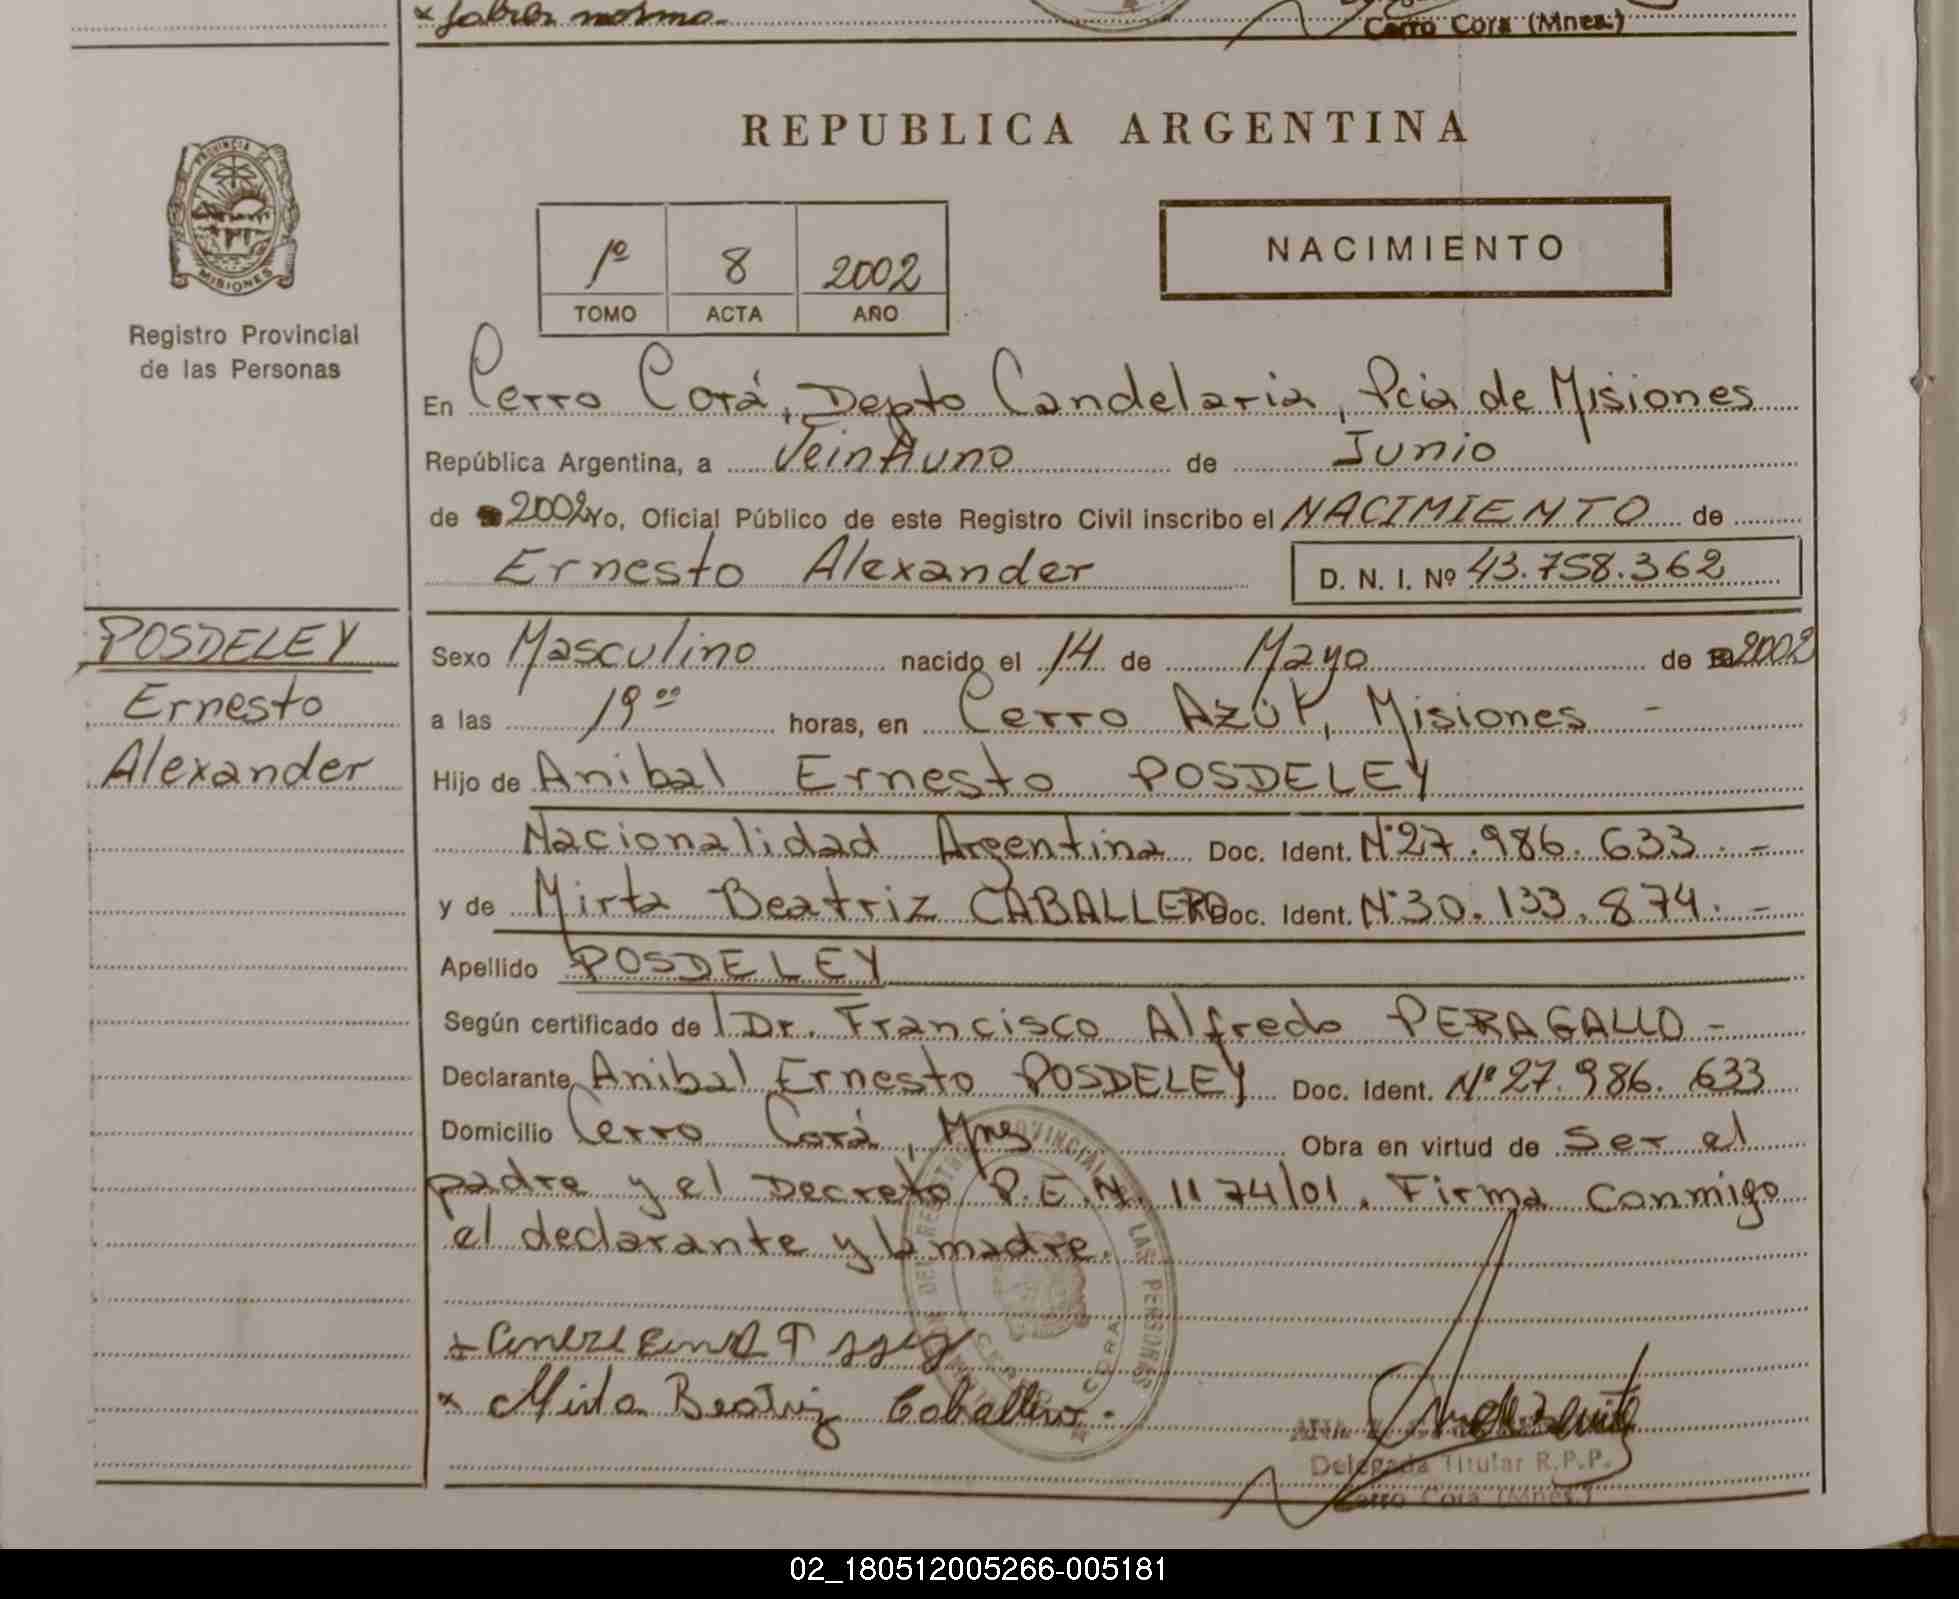 Cerro Cora (Mnes.)
REPUBLICA ARGENTINA
PROVINCIA DE
MISIONES
Registro Provincial
de las Personas
1º 8 2002
TOMO ACTA AÑO
NACIMIENTO
En Cerro Corá, Depto Candelaria, Pcia de Misiones
República Argentina, a Veintiuno de Junio
de 2002 Yo, Oficial Público de este Registro Civil inscribo el NACIMIENTO de
Ernesto Alexander D. N. I. Nº 43.758.362
POSDELEY
Ernesto
Alexander
Sexo Masculino nacido el 14 de Mayo de 2002
a las 19ºº horas, en Cerro Azul, Misiones -
Hijo de Anibal Ernesto POSDELEY
Nacionalidad Argentina Doc. Ident. Nº27.986.633.-
y de Mirta Beatriz CABALLERO Doc. Ident. Nº30.133.874.-
Apellido POSDELEY
Según certificado de Dr. Francisco Alfredo PERAGALLO -
Declarante Anibal Ernesto POSDELEY Doc. Ident. Nº 27.986.633
Domicilio Cerro Corá, Mnes Obra en virtud de ser el
padre y el Decreto P.E.N. 1174/01. Firma conmigo
el declarante y la madre.
x Mirta Beatriz Caballero.
Delegada Titular R.P.P.
Cerro Cora (Mnes.)
02_180512005266-005181